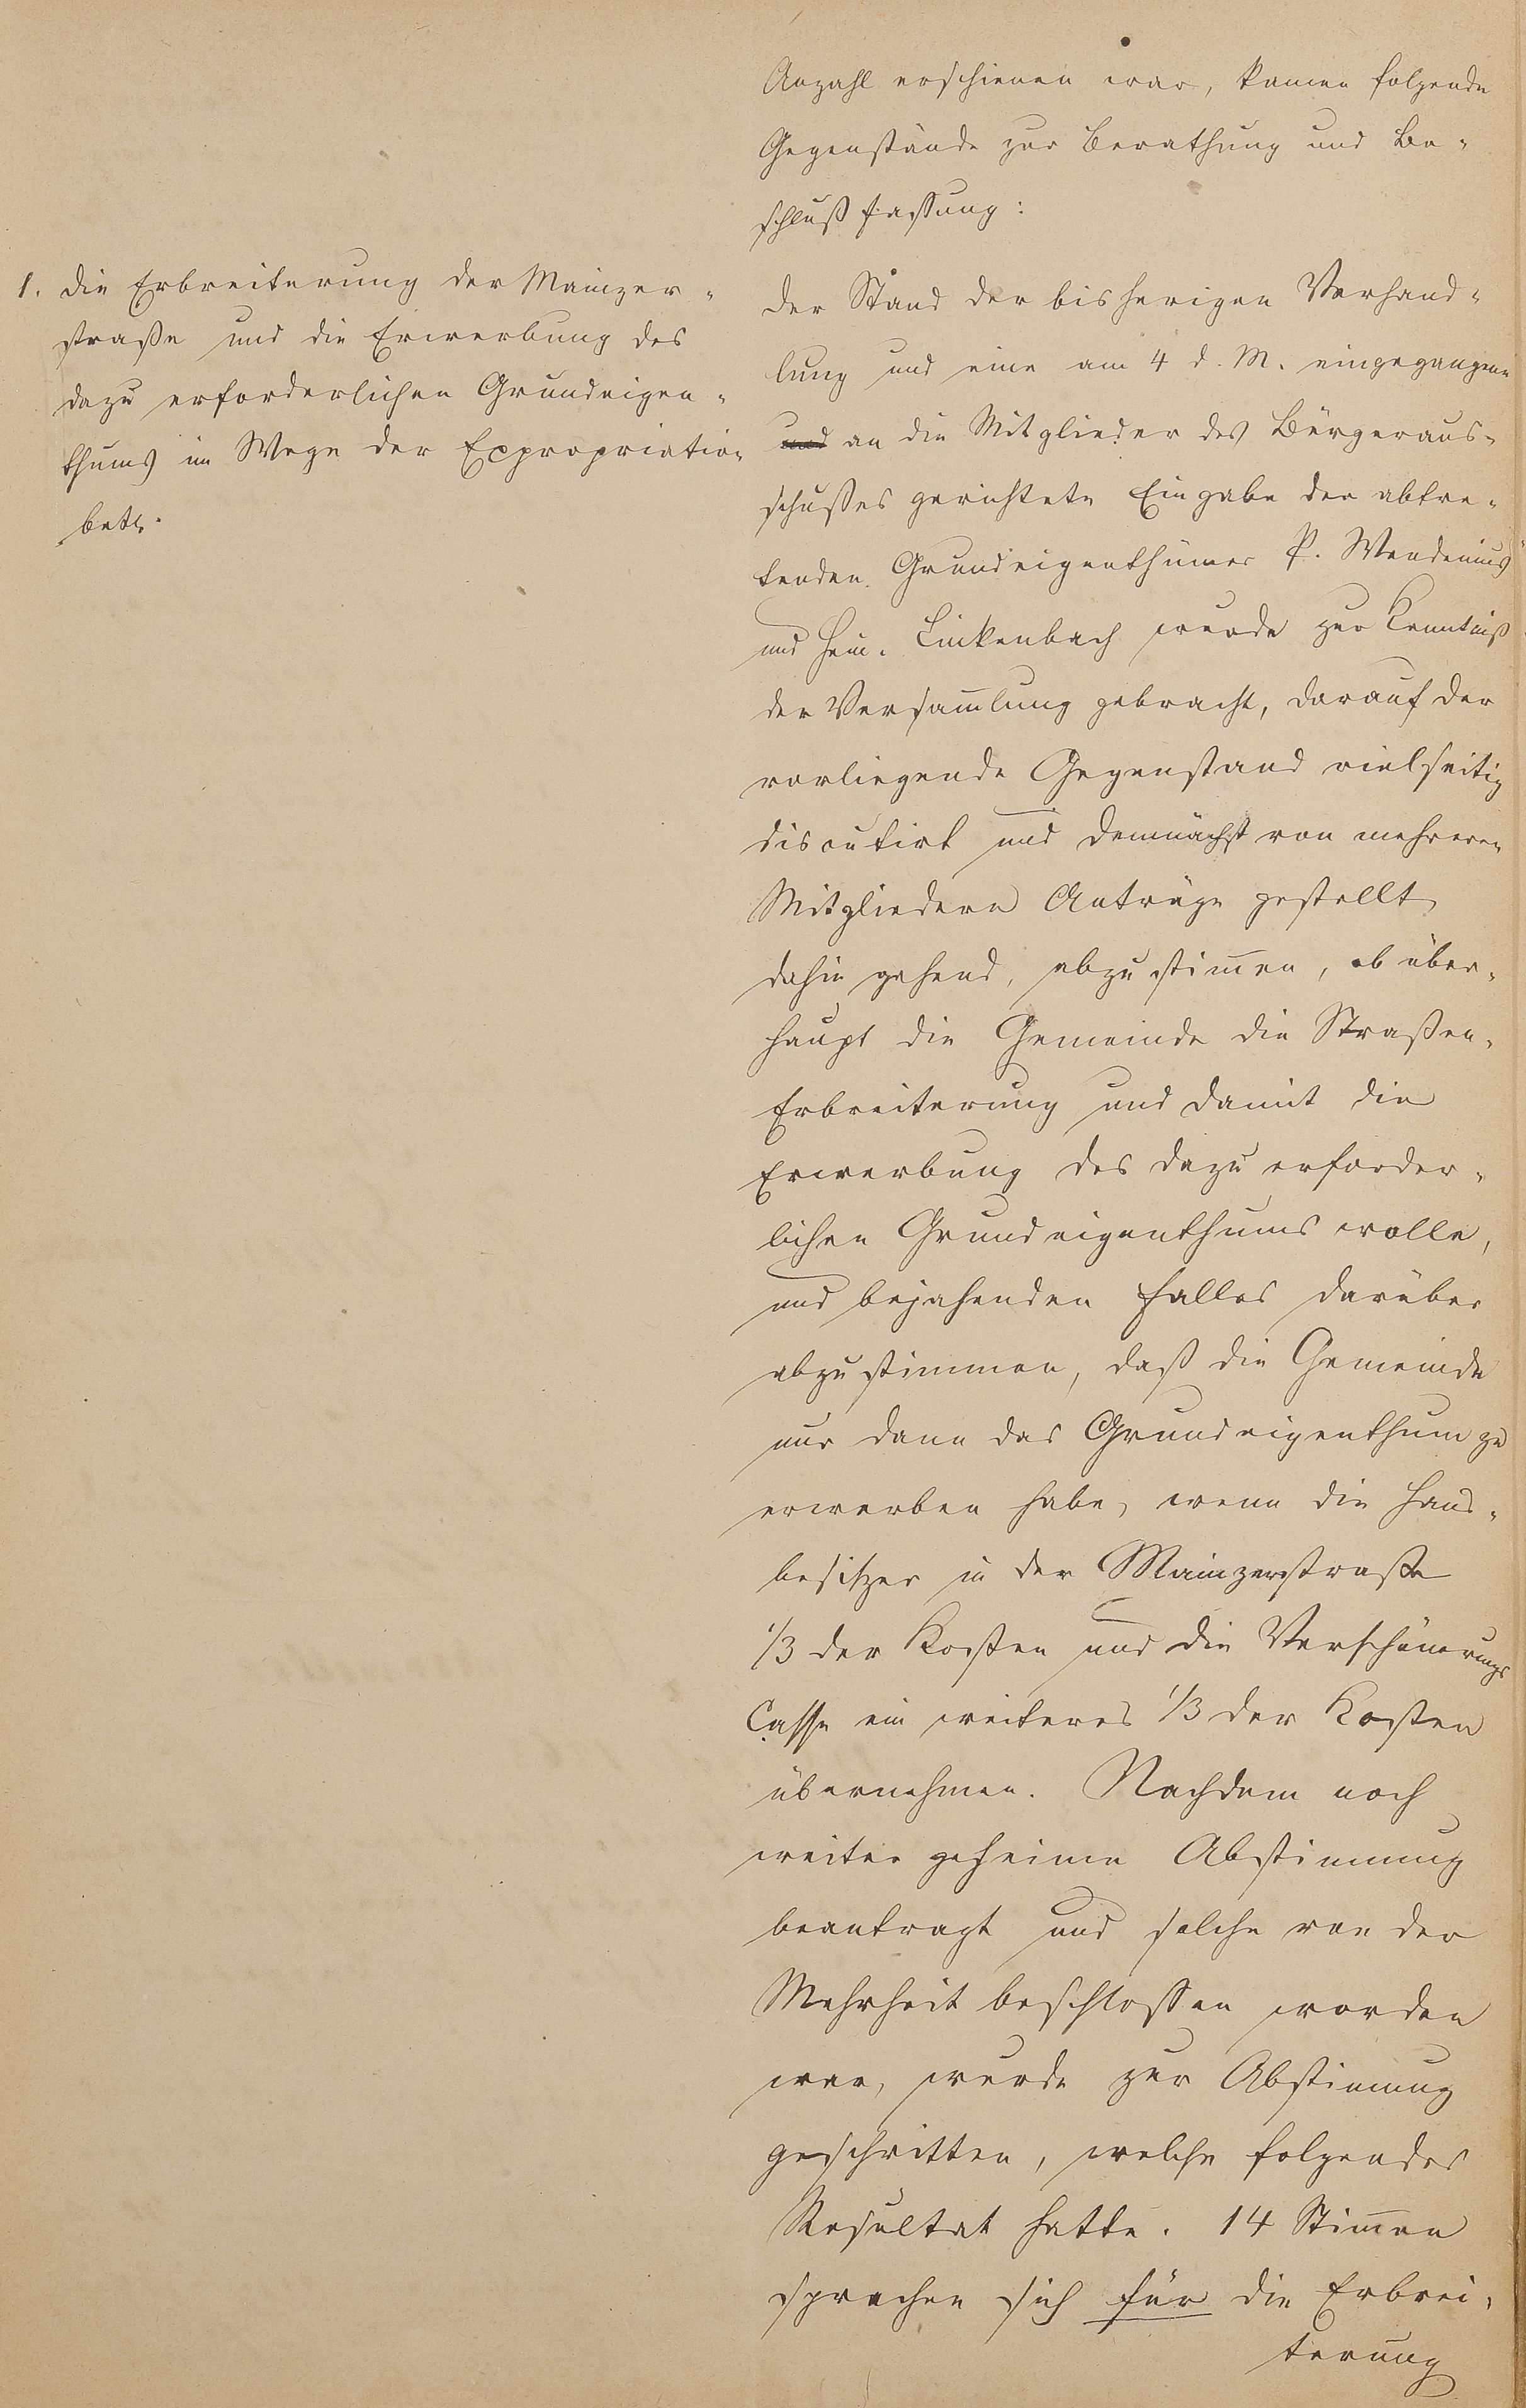 Anzahl erschienen war, kamen folgende
Gegenstände zur Berathung und Be-
schlußfassung:
1. Die Erbreiterung der Mainzer-
straße und die Erwerbung des
dazu erforderlichen Grundeigen-
thums im Wege der Expropriation
betr.
Der Stand der bisherigen Verhand-
lung und eine am 4 d. M. eingegangene
und an die Mitglieder des Bürgeraus-
schußes gerichtete Eingabe der abtre-
tenden Grundeigenthümer P.
und Hein. Linkenbach wurde zur Kenntniß
der Versam̅lung gebracht, darauf der
vorliegende Gegenstand vielseitig
discutirt und demnächst von mehreren
Mitgliedern Anträge gestellt
dahin gehend, abzustim̅en, ob über-
haupt die Gemeinde die Straßen-
Erbreiterung und damit die
Erwerbung des dazu erforder-
lichen Grundeigenthums wolle,
und bejahenden Falles darüber
abzustimmen, daß die Gemeinde
nur dann das Grundeigenthum zu
erwerben habe, wenn die Haus-
besitzer in der Mainzerstraße
1/3 der Kosten und die Verschönerungs
Casse ein weiteres 1/3 der Kosten
übernehmen. Nachdem noch
weiter geheime Abstimmung
beantragt und solche von der
Mehrheit beschlossen worden
war, wurde zur Abstimmung
geschritten, welche folgendes
Resultat hatte. 14 Stim̅en
sprachen sich für die Erbrei-
terung